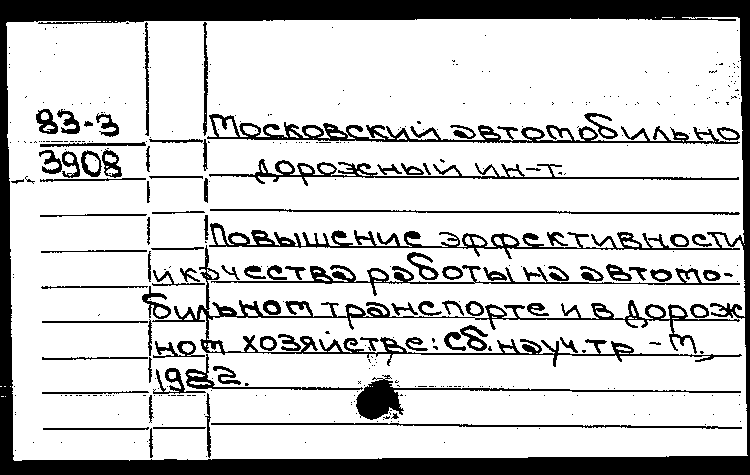 83-3
Московский автомобильно
3908
дорожный ин-т.
Повышение эффективности
и качества работы на автомо-
бильном транспорте и в дорож
ном хозяйстве: сб. науч. тр. - М.,
1982.